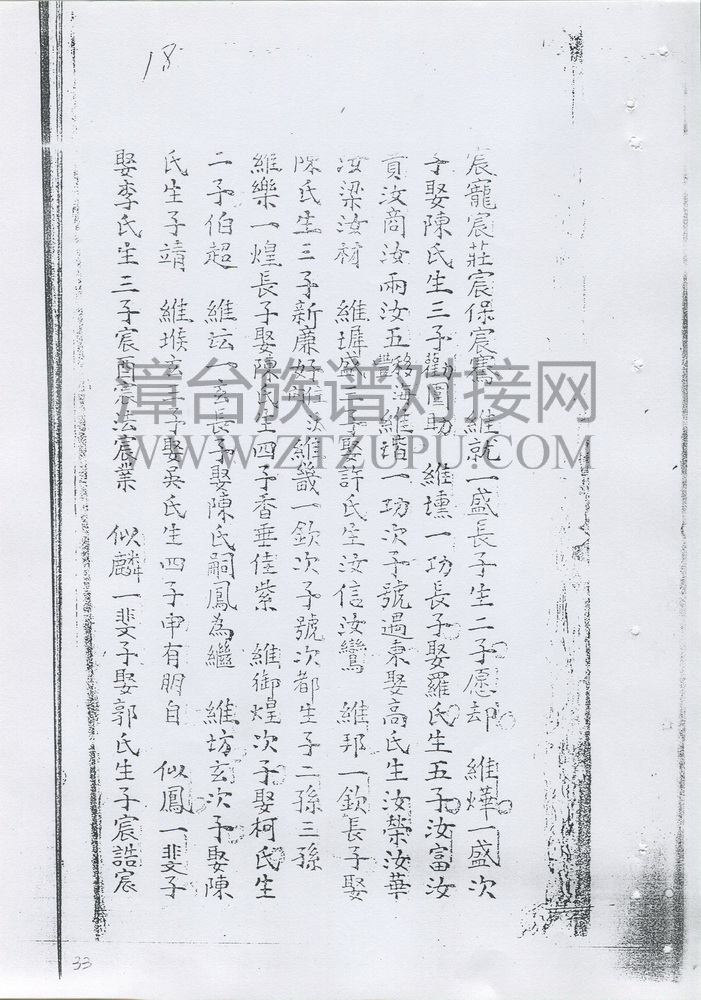 18
宸寵宸莊宸保宸騫 維就一盛長子生二子愿却 維燁一盛次
子娶陳氏生三子勸圖助 維壎一功長子娶羅氏生五子汝富汝
貢汝商汝兩汝五 維楷一功次子號過東娶高氏生汝榮汝華
汝梁汝材 維墀盛三子娶許氏生汝信汝鸞 維邦一欽長子娶
陳氏生三子新廉好 維畿一欽次子號次都生子二孫三孫
維樂一煌長子娶陳氏生四子香垂佳紫 維御煌次子娶柯氏生
二子伯超 維坛一玄長子娶陳氏嗣鳳為繼 維坊玄次子娶陳
氏生子靖 維堠玄三子娶吳氏生四子申有朋自 似鳳一斐子
娶李氏生三子宸酉宸法宸業 似麟一斐子娶郭氏生子宸誥宸
漳台族谱对接网
WWW.ZTZUPU.COM
33